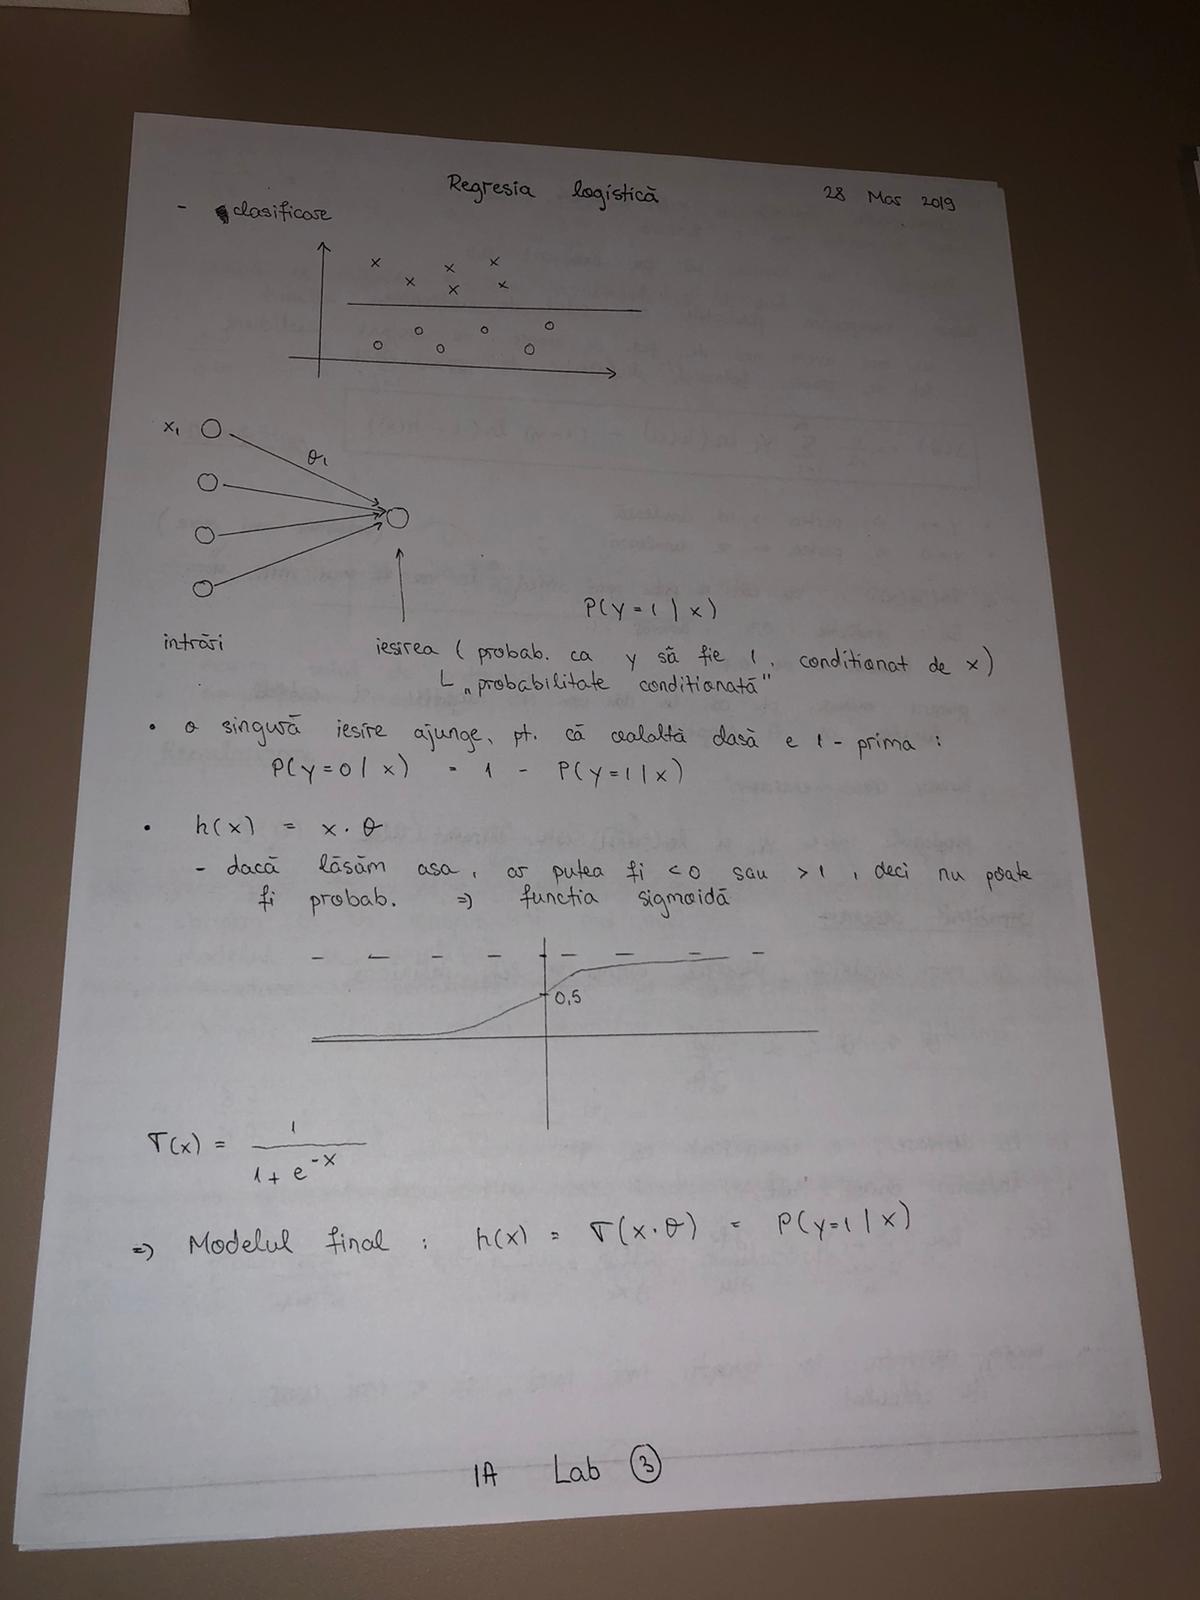 Regresia logistică
28 Mar 2019
- clasificare
x₁
θ₁
P(y=1 | x)
intrări
iesirea ( probab. ca y să fie 1, conditionat de x)
↳ „probabilitate conditionată"
• o singură iesire ajunge, pt. că cealaltă clasă e 1 - prima :
P(y=0 | x) = 1 - P(y=1 | x)
• h(x) = x · θ
- dacă lăsăm asa, ar putea fi <0 sau >1, deci nu poate
fi probab. => functia sigmoidă
0,5
σ(x) = 1 / (1 + e^-x)
=> Modelul final : h(x) = σ(x·θ) = P(y=1 | x)
IA Lab ③